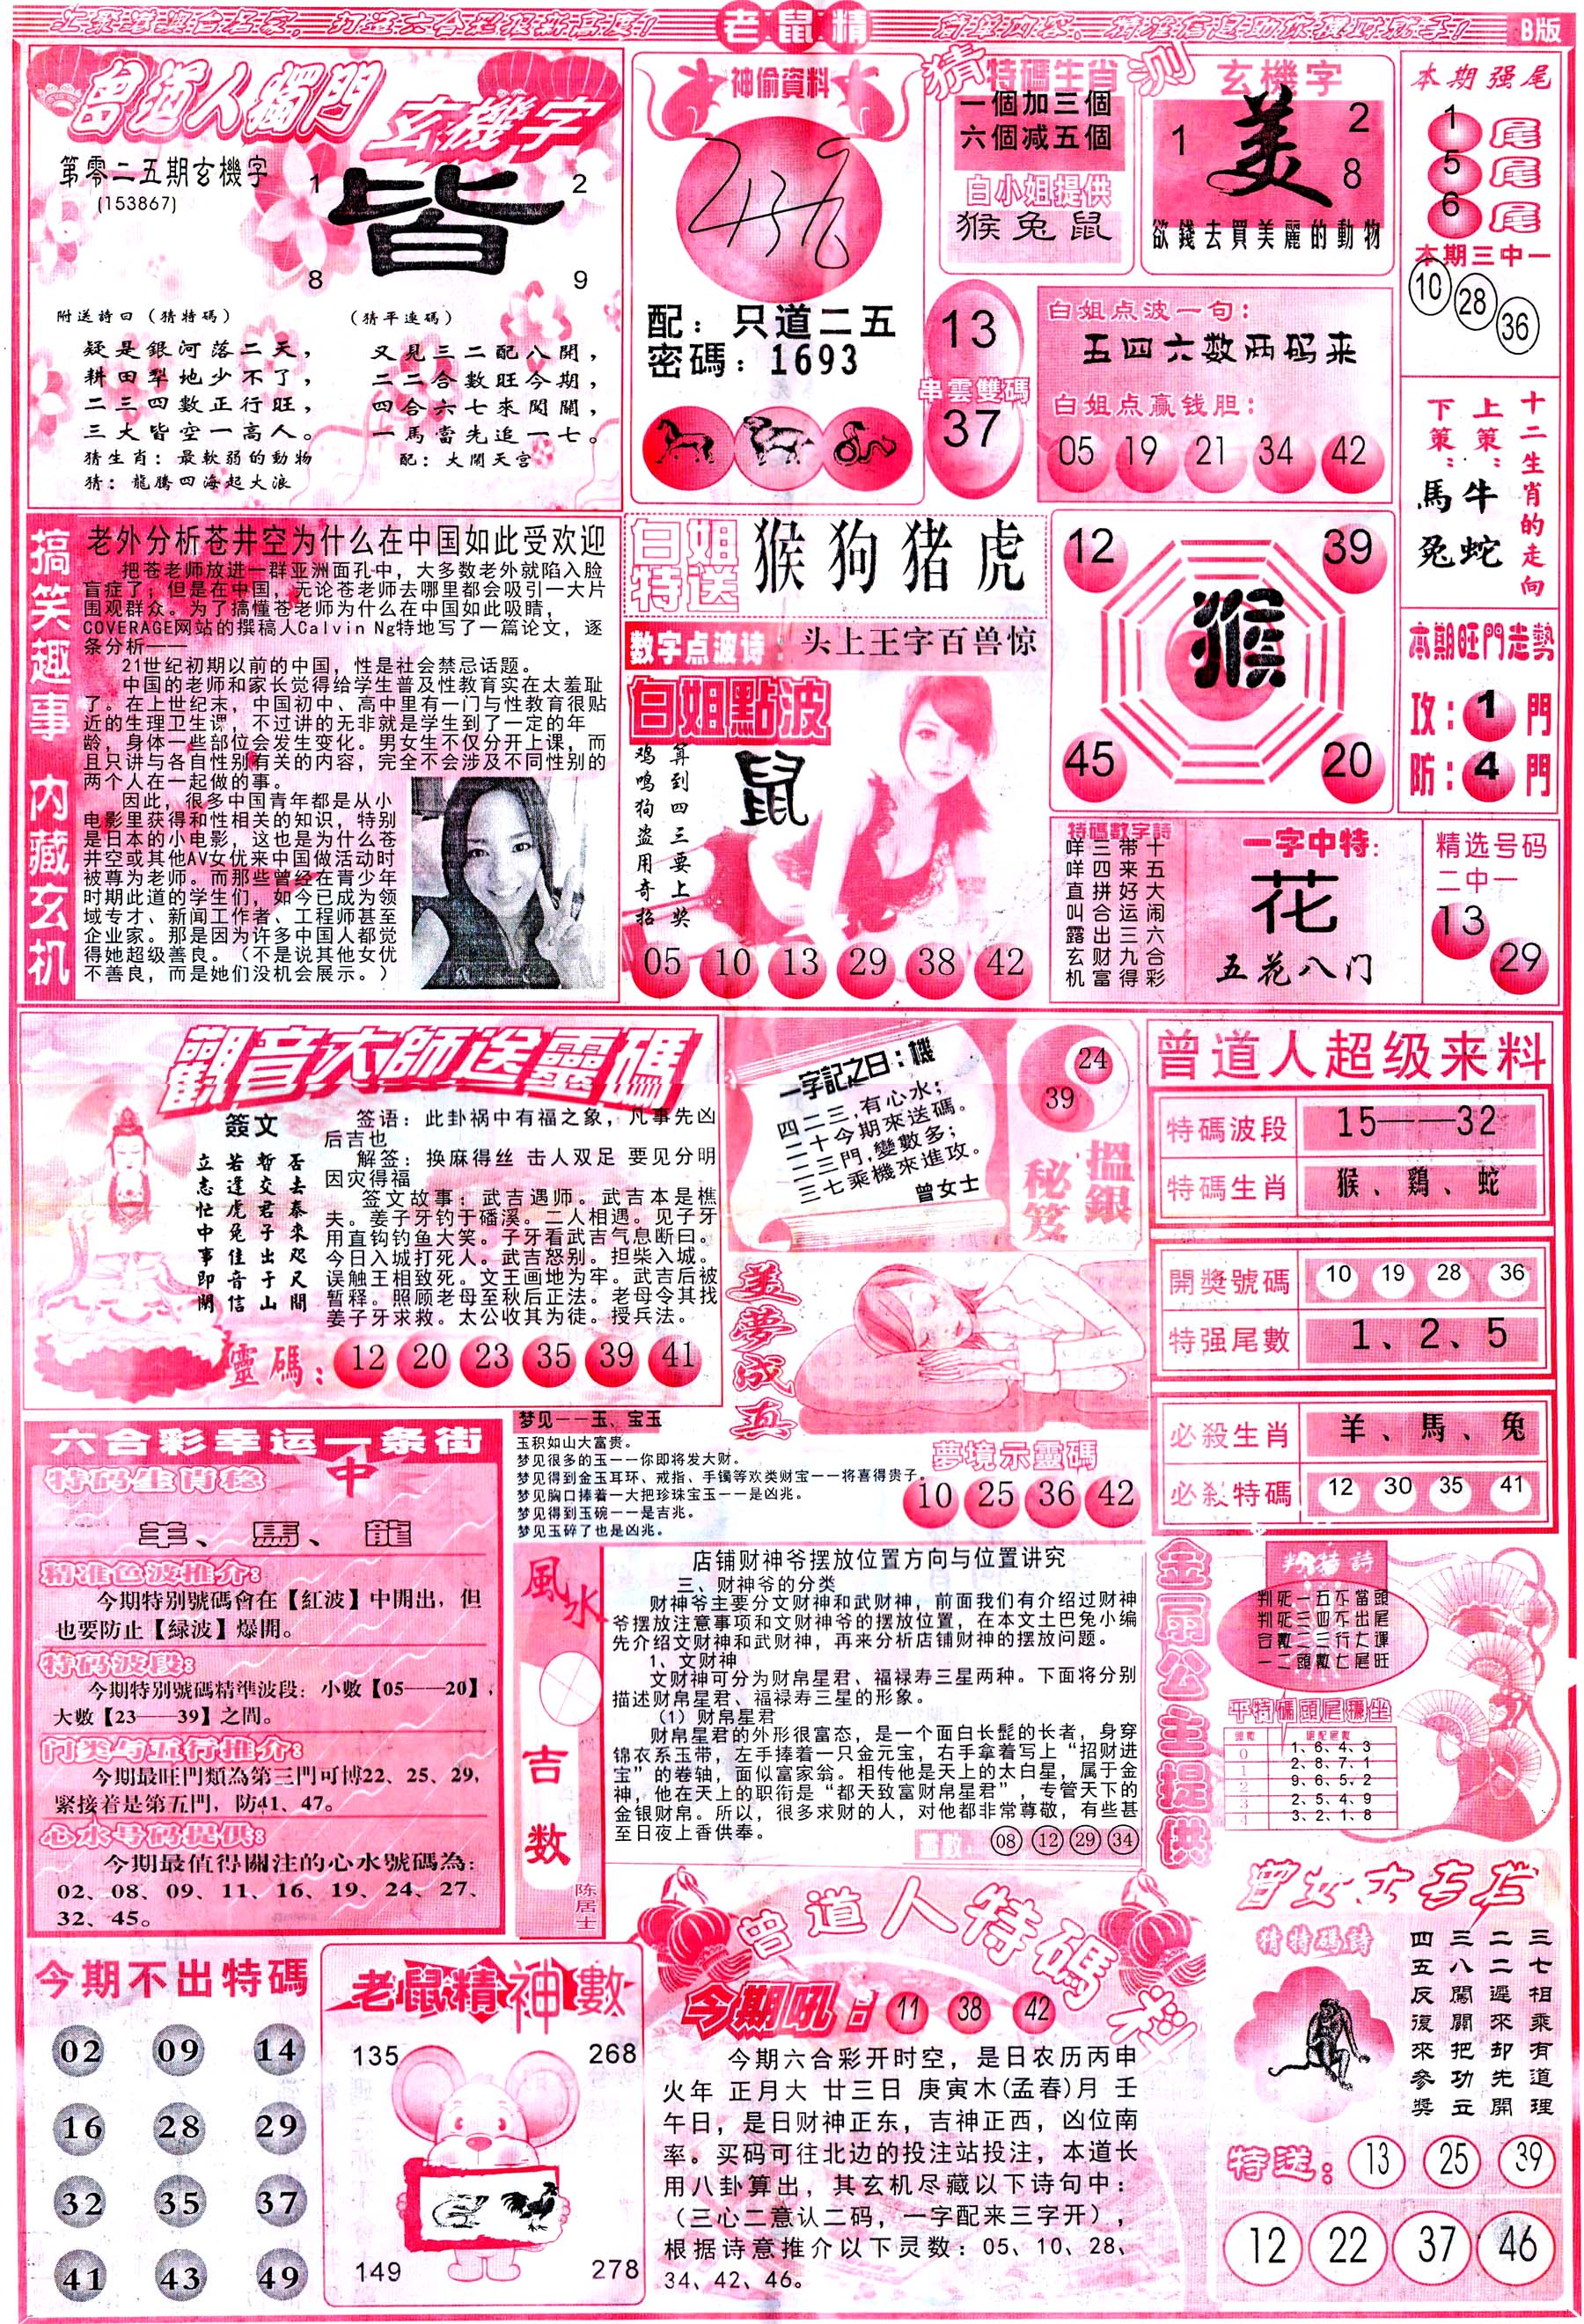 老鼠精
B版
曾道人獨門
玄機字
第零二五期玄機字
(153867)
皆
1
2
8
9
附送詩曰（猜特碼）
疑是銀河落二天，
耕田犁地少不了，
二三四數正行旺，
三大皆空一高人。
猜生肖：最軟弱的動物
猜：龍騰四海起大浪
（猜平連碼）
又見三二配八開，
二二合數旺今期，
四合六七來閱開，
一馬當先追一七。
配：大鬧天宮
神偷資料
配：只道二五
密碼：1693
猜
特碼生肖
一個加三個
六個减五個
白小姐提供
猴兔鼠
测
玄機字
美
1
2
8
欲錢去買美麗的動物
本期强尾
1尾
5尾
6尾
本期三中一
10
28
36
13
串雲雙碼
37
白姐点波一句：
五四六数两码来
白姐点赢钱胆：
05 19 21 34 42
十二生肖的走向
上策：牛蛇
下策：馬兔
搞笑趣事 内藏玄机
老外分析苍井空为什么在中国如此受欢迎
把苍老师放进一群亚洲面孔中，大多数老外就陷入脸
盲症了；但是在中国，无论苍老师去哪里都会吸引一大片
围观群众。为了搞懂苍老师为什么在中国如此吸睛，
COVERAGE网站的撰稿人Calvin Ng特地写了一篇论文，逐
条分析——
21世纪初期以前的中国，性是社会禁忌话题。
中国的老师和家长觉得给学生普及性教育实在太羞耻
了。在上世纪末，中国初中、高中里有一门与性教育很贴
近的生理卫生课，不过讲的无非就是学生到了一定的年
龄，身体一些部位会发生变化。男女生不仅分开上课，而
且只讲与各自性别有关的内容，完全不会涉及不同性别的
两个人在一起做的事。
因此，很多中国青年都是从小
电影里获得和性相关的知识，特别
是日本的小电影，这也是为什么苍
井空或其他AV女优来中国做活动时
被尊为老师。而那些曾经在青少年
时期此道的学生们，如今已成为领
域专才、新闻工作者、工程师甚至
企业家。那是因为许多中国人都觉
得她超级善良。（不是说其他女优
不善良，而是她们没机会展示。）
白姐特送
猴狗猪虎
数字点波诗：头上王字百兽惊
白姐點波
鼠
算到四三要上奖
鸡鸣狗盗用奇招
05 10 13 29 38 42
12
39
猴
45
20
本期旺門走勢
攻：1門
防：4門
特碼數字詩
十五大闹六合彩
带来好运三九得
三四拼合出财富
咩咩直叫露玄机
一字中特：
花
五花八门
精选号码
二中一
13
29
觀音大師送靈碼
簽文
否去泰來咫尺間
暫交君子出于山
若逢虎兔佳音信
立志忙中事即關
签语：此卦祸中有福之象，凡事先凶
后吉也
解签：换麻得丝 击人双足 要见分明
因灾得福
签文故事：武吉遇师。武吉本是樵
夫。姜子牙钓于磻溪。二人相遇。见子牙
用直钩钓鱼大笑。子牙看武吉气息断曰。
今日入城打死人。武吉怒别。担柴入城。
误触王相致死。文王画地为牢。武吉后被
暂释。照顾老母至秋后正法。老母令其找
姜子牙求救。太公收其为徒。授兵法。
靈碼：12 20 23 35 39 41
一字記之曰：機
四二三，有心水；
二十今期來送碼。
二三門，變數多；
三七乘機來進攻。
曾女士
24
39
搵銀秘笈
曾道人超级来料
特碼波段 15——32
特碼生肖 猴、鷄、蛇
開獎號碼 10 19 28 36
特强尾數 1、2、5
必殺生肖 羊、馬、兔
必殺特碼 12 30 35 41
美夢成真
梦见——玉、宝玉
玉积如山大富贵。
梦见很多的玉——你即将发大财。
梦见得到金玉耳环、戒指、手镯等欢类财宝——将喜得贵子。
梦见胸口捧着一大把珍珠宝玉——是凶兆。
梦见得到玉碗——是吉兆。
梦见玉碎了也是凶兆。
夢境示靈碼
10 25 36 42
六合彩幸运一条街
中
特码生肖稳
羊、馬、龍
精准色波推介：
今期特别號碼會在【紅波】中開出，但
也要防止【緑波】爆開。
特码波段：
今期特别號碼精準波段：小數【05——20】，
大數【23——39】之間。
门类与五行推介：
今期最旺門類為第三門可博22、25、29，
緊接着是第五門，防41、47。
心水号码提供：
今期最值得關注的心水號碼為：
02、08、09、11、16、19、24、27、
32、45。
風水
吉数
陈居士
店铺财神爷摆放位置方向与位置讲究
三、财神爷的分类
财神爷主要分文财神和武财神，前面我们有介绍过财神
爷摆放注意事项和文财神爷的摆放位置，在本文土巴兔小编
先介绍文财神和武财神，再来分析店铺财神的摆放问题。
1、文财神
文财神可分为财帛星君、福禄寿三星两种。下面将分别
描述财帛星君、福禄寿三星的形象。
（1）财帛星君
财帛星君的外形很富态，是一个面白长髭的长者，身穿
锦衣系玉带，左手捧着一只金元宝，右手拿着写上“招财进
宝”的卷轴，面似富家翁。相传他是天上的太白星，属于金
神，他在天上的职衔是“都天致富财帛星君”，专管天下的
金银财帛。所以，很多求财的人，对他都非常尊敬，有些甚
至日夜上香供奉。
靈數：08 12 29 34
金扇公主提供
判特詩
判死一五不當頭
判死三四不出尾
合數三三行大運
一二頭數七尾旺
平特碼頭尾穩坐
0 1、6、4、3
1 2、8、7、1
2 9、6、5、2
3 2、5、4、9
4 3、2、1、8
今期不出特碼
02 09 14
16 28 29
32 35 37
41 43 49
老鼠精神數
135
268
149
278
曾道人特碼料
今期吼：11 38 42
今期六合彩开时空，是日农历丙申
火年 正月大 廿三日 庚寅木(孟春)月 壬
午日，是日财神正东，吉神正西，凶位南
率。买码可往北边的投注站投注，本道长
用八卦算出，其玄机尽藏以下诗句中：
（三心二意认二码，一字配来三字开），
根据诗意推介以下灵数：05、10、28、
34、42、46。
曾女士专栏
猜特碼詩
三七相乘有道理
二二遲來却先開
三八閱開把功立
四五反復來參獎
特送：13 25 39
12 22 37 46